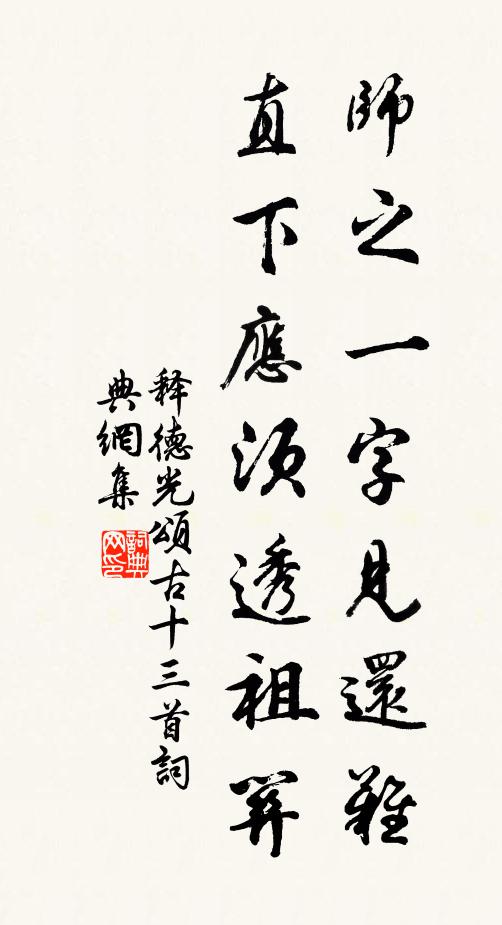 師之一字見還難
直下應須透祖關
释德光頌古十三首詞
典網集
詞典网印